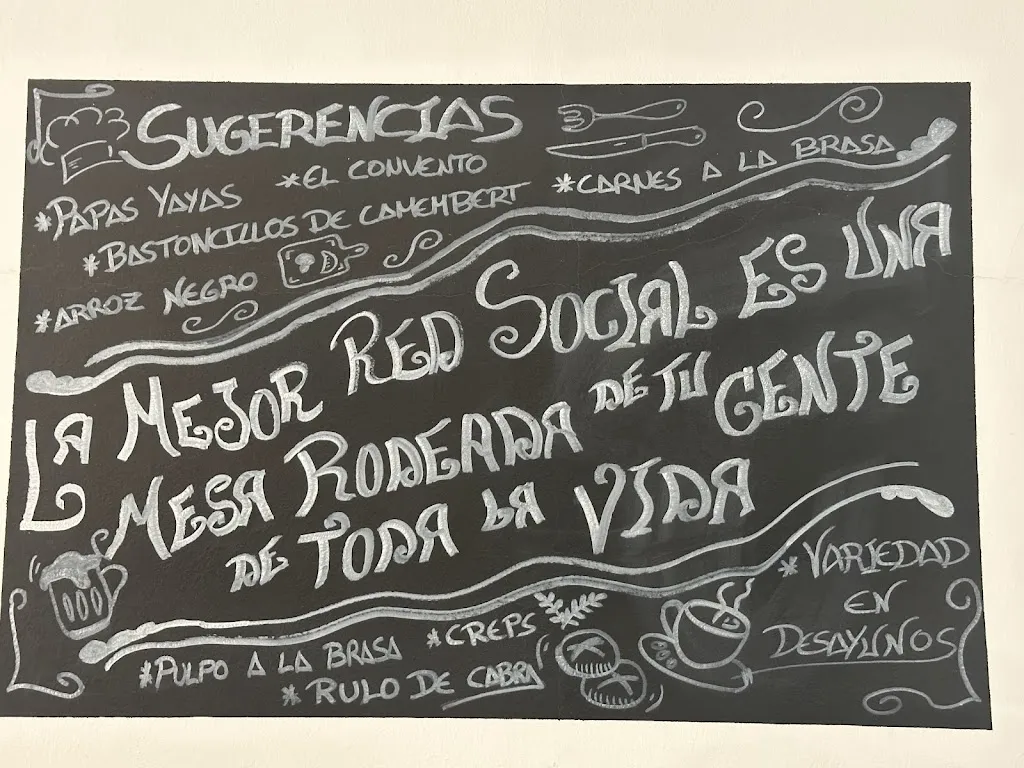 SUGERENCIAS
*PAPAS YAYAS
*EL CONVENTO
*BASTONCILLOS DE CAMEMBERT
*CARNES A LA BRASA
*ARROZ NEGRO
LA MEJOR RED SOCIAL ES UNA
MESA RODEADA DE TU GENTE
DE TODA LA VIDA
*VARIEDAD
EN
DESAYUNOS
*PULPO A LA BRASA
*CREPS
*RULO DE CABRA